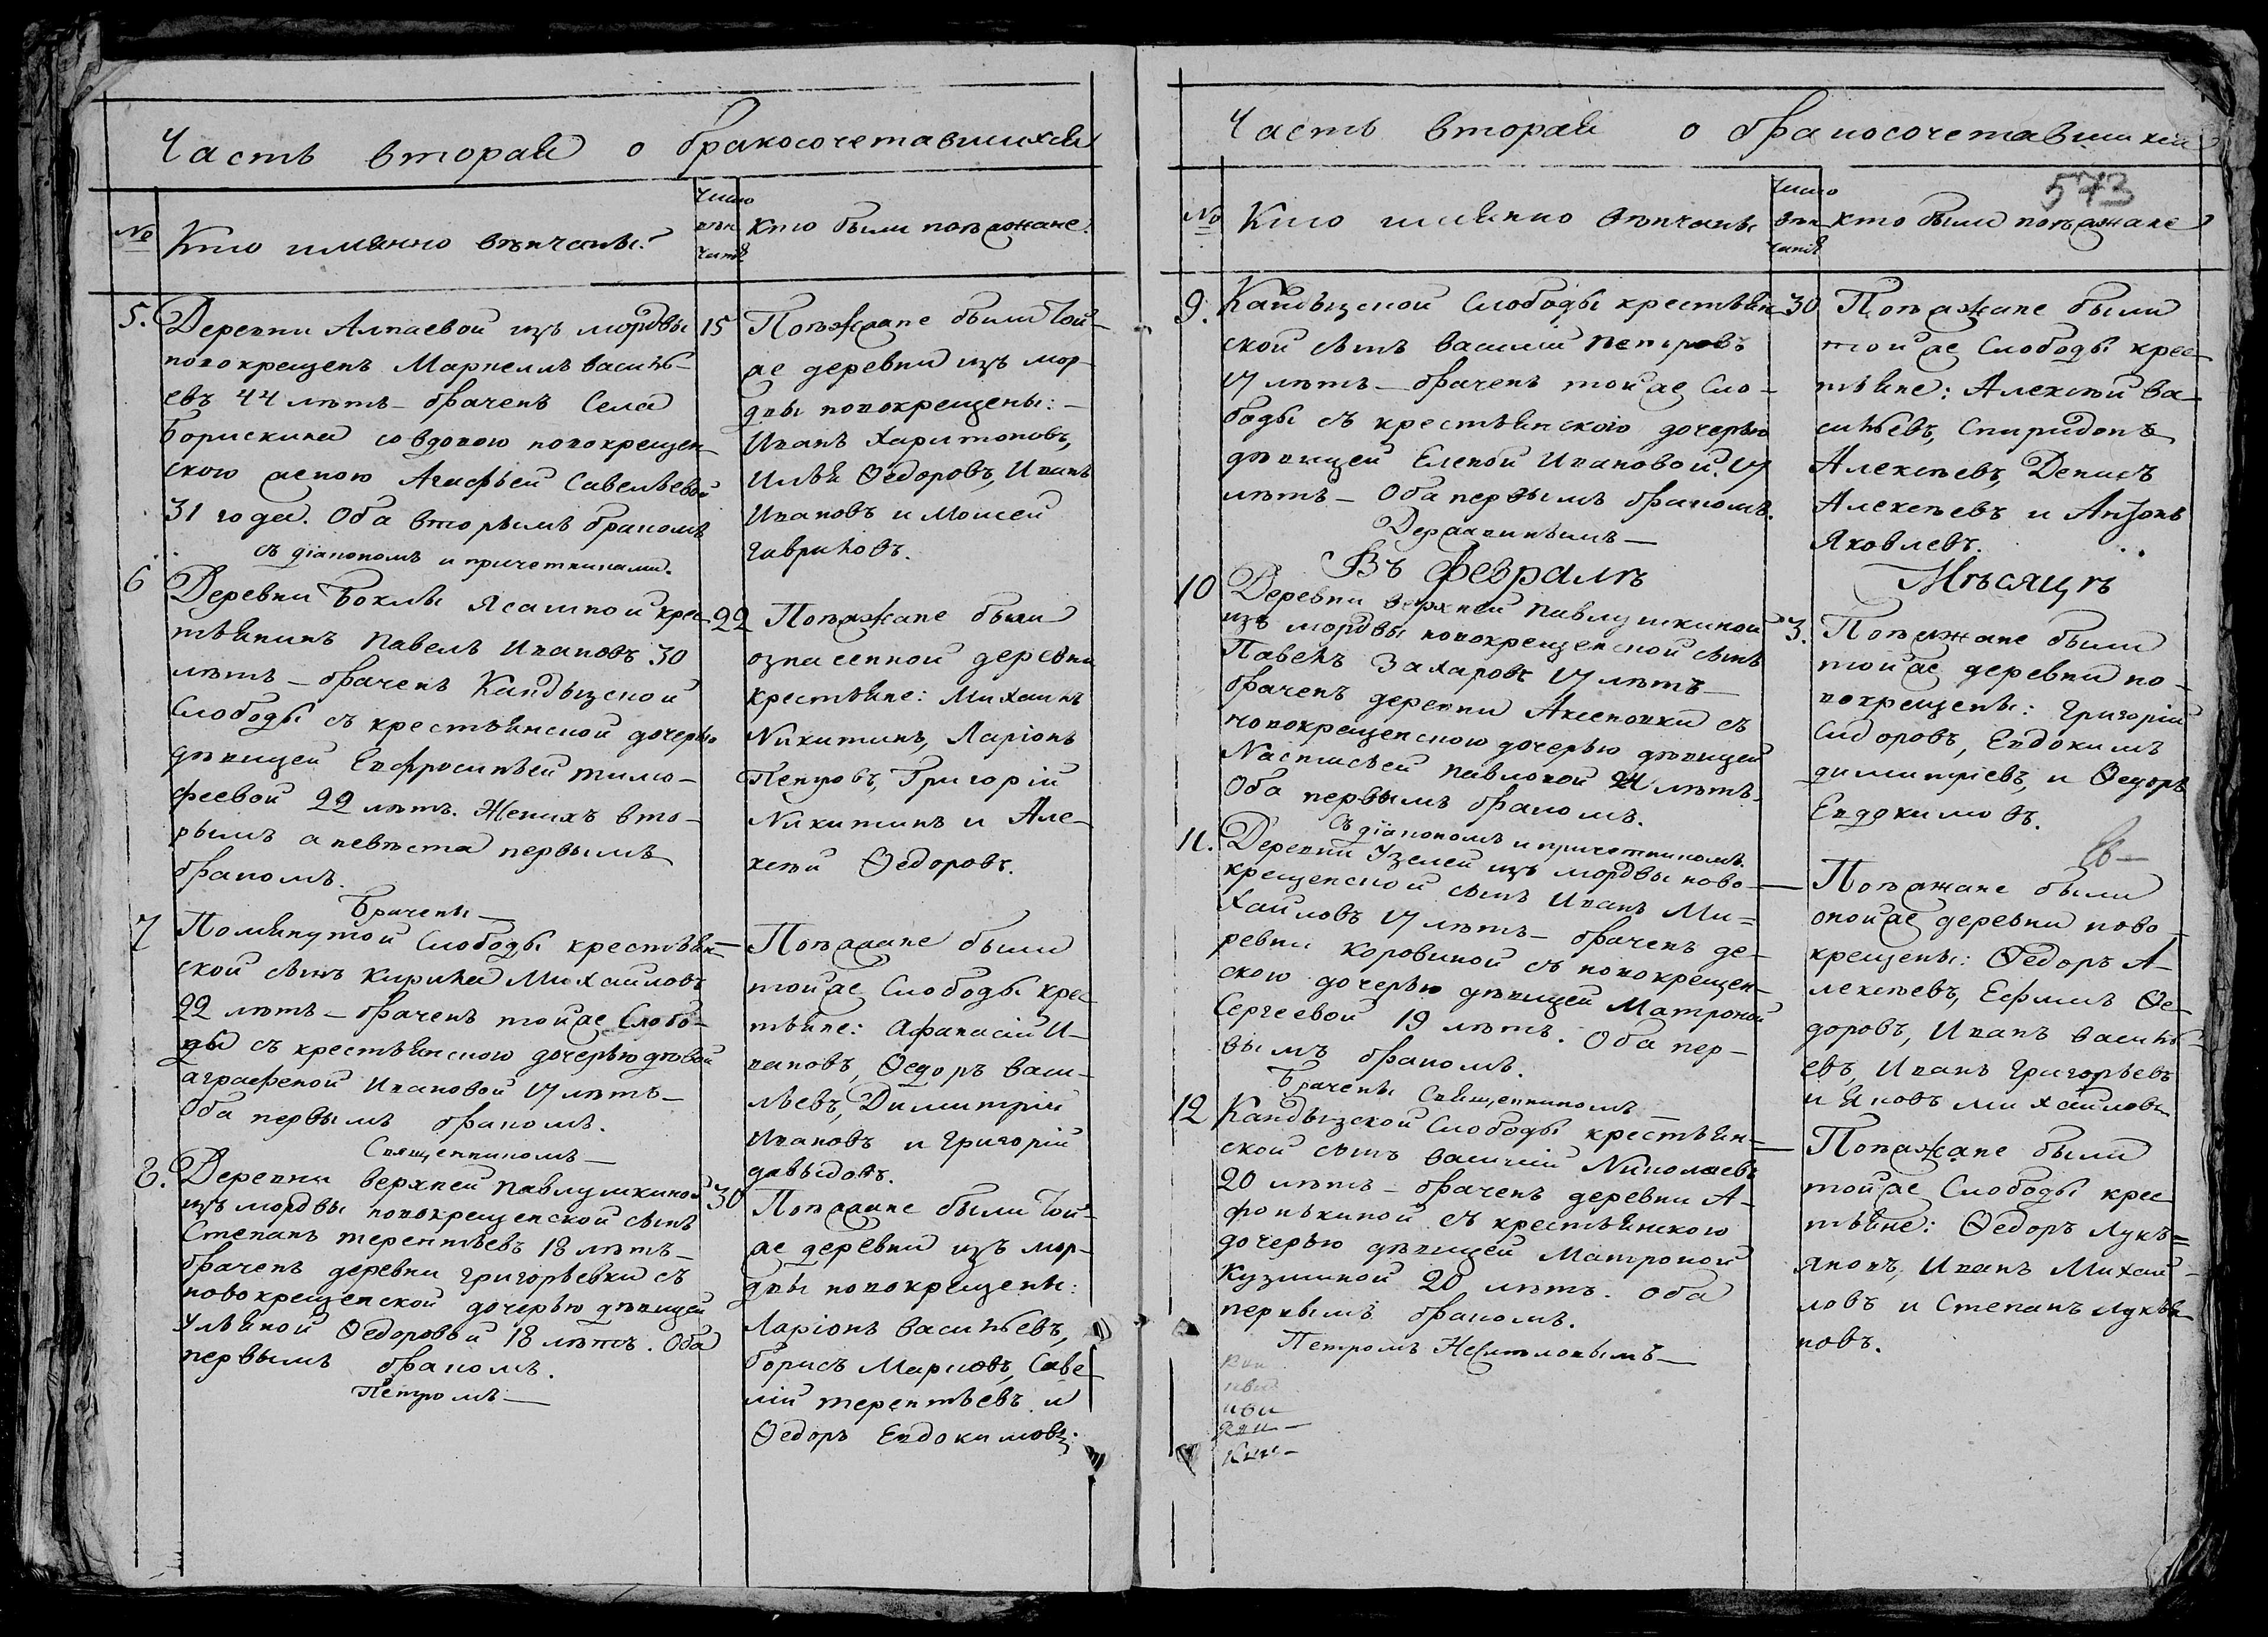 Часть вторая о бракосочетавшихся
№
Кто имянно венчаны.
Число
вен
чанiй
Кто были поезжане.
5.
Деревни Алпаевой изъ мордвы
новокрещенъ Маркеллъ Василь-
евъ 44 летъ – браченъ Села
Борискина со вдовою новокрещен-
скою женою Агафьей Савельевой
31 года. Оба вторымъ бракомъ
съ дiакономъ и причетниками.
15
Поезжане были той-
же деревни изъ мор-
двы новокрещены: –
Иванъ Харитоновъ,
Илья Ѳедоровъ, Иванъ
Ивановъ и Моисей
Гавриловъ.
6
Деревни Боклы ясашной крес-
тьянинъ Павелъ Ивановъ 30
летъ – браченъ Кандызской
Слободы съ крестьянской дочерью
девицей Евфросиньей Тимо-
феевой 22 летъ. Женихъ вто-
рымъ а невеста первымъ
бракомъ.
Брачены –
22
Поезжане были
означенной деревни
крестьяне: Михаилъ
Никитинъ, Ларiонъ
Петровъ, Григорiй
Никитинъ и Але-
ксѣй Ѳедоровъ.
7
Помянутой Слободы крестьян-
ской сынъ Кирила Михайловъ
22 летъ – браченъ тойже Слобо-
ды съ крестьянскою дочерью девой
Аграфеной Ивановой 17 летъ –
Оба первымъ бракомъ.
Священникомъ –
Поезжане были
тойже Слободы крес-
тьяне: Афанасiй И-
вановъ, Ѳедоръ Васи-
льевъ, Димитрiй
Ивановъ и Григорiй
Давыдовъ.
8.
Деревни верхней Павлушкиной
изъ мордвы новокрещенской сынъ
Степанъ Терентьевъ 18 летъ –
браченъ деревни Григорьевки съ
новокрещенской дочерью девицей
Ульяной Ѳедоровой 18 летъ. Оба
первымъ бракомъ.
Петромъ –
30
Поезжане были той-
же деревни изъ мор-
двы новокрещены:
Ларiонъ Васильевъ,
Борисъ Марковъ, Саве-
лiй Терентьевъ и
Ѳедоръ Евдокимовъ.
Часть вторая о бракосочетавшихся
573
№
Кто имянно венчаны
Число
вен
чанiй
кто были поезжане
9.
Кандызской Слободы крестьян-
ской сынъ Василiй Петровъ
17 летъ – браченъ тойже Сло-
боды съ крестьянскою дочерью
девицей Еленой Ивановой 17
летъ – Оба первымъ бракомъ.
Державинымъ –
30
Поезжане были
тойже Слободы крес-
тьяне: Алексѣй Ва-
сильевъ, Спиридонъ
Алексѣевъ, Денисъ
Алексѣевъ и Антонъ
Яковлевъ.
Въ Февралѣ Мѣсяцѣ
10
Деревни верхней Павлушкиной
изъ мордвы новокрещенской сынъ
Павелъ Захаровъ 17 летъ –
браченъ деревни Аксеновки съ
новокрещенскою дочерью девицей
Настасьей Павловой 21 летъ.
Оба первымъ бракомъ.
Съ дiакономъ и причетникомъ.
3.
Поезжане были
тойже деревни но-
вокрещены: Григорiй
Сидоровъ, Евдокимъ
Димитрiевъ, и Ѳедоръ
Евдокимовъ.
11.
Деревни Узелей изъ мордвы ново-
крещенской сынъ Иванъ Ми-
хайловъ 17 летъ – браченъ де-
ревни Коровиной съ новокрещен-
скою дочерью девицей Матроной
Сергеевой 19 летъ. Оба пер-
вымъ бракомъ.
Брачены Священникомъ
Поезжане были
онойже деревни ново-
крещены: Ѳедоръ А-
лексѣевъ, Ефимъ Ѳе-
доровъ, Иванъ Василь-
евъ, Иванъ Григорьевъ
и Яковъ Михайловъ
12
Кандызской Слободы крестьян-
ской сынъ Василiй Николаевъ
20 летъ – браченъ деревни А-
фонькиной съ крестьянскою
дочерью девицей Матроной
Кузминой 20 летъ. Оба
первымъ бракомъ.
Петромъ
Поезжане были
тойже Слободы крес-
тьяне: Ѳедоръ Лукъ-
яновъ, Иванъ Михай-
ловъ и Степанъ Лукья-
новъ.